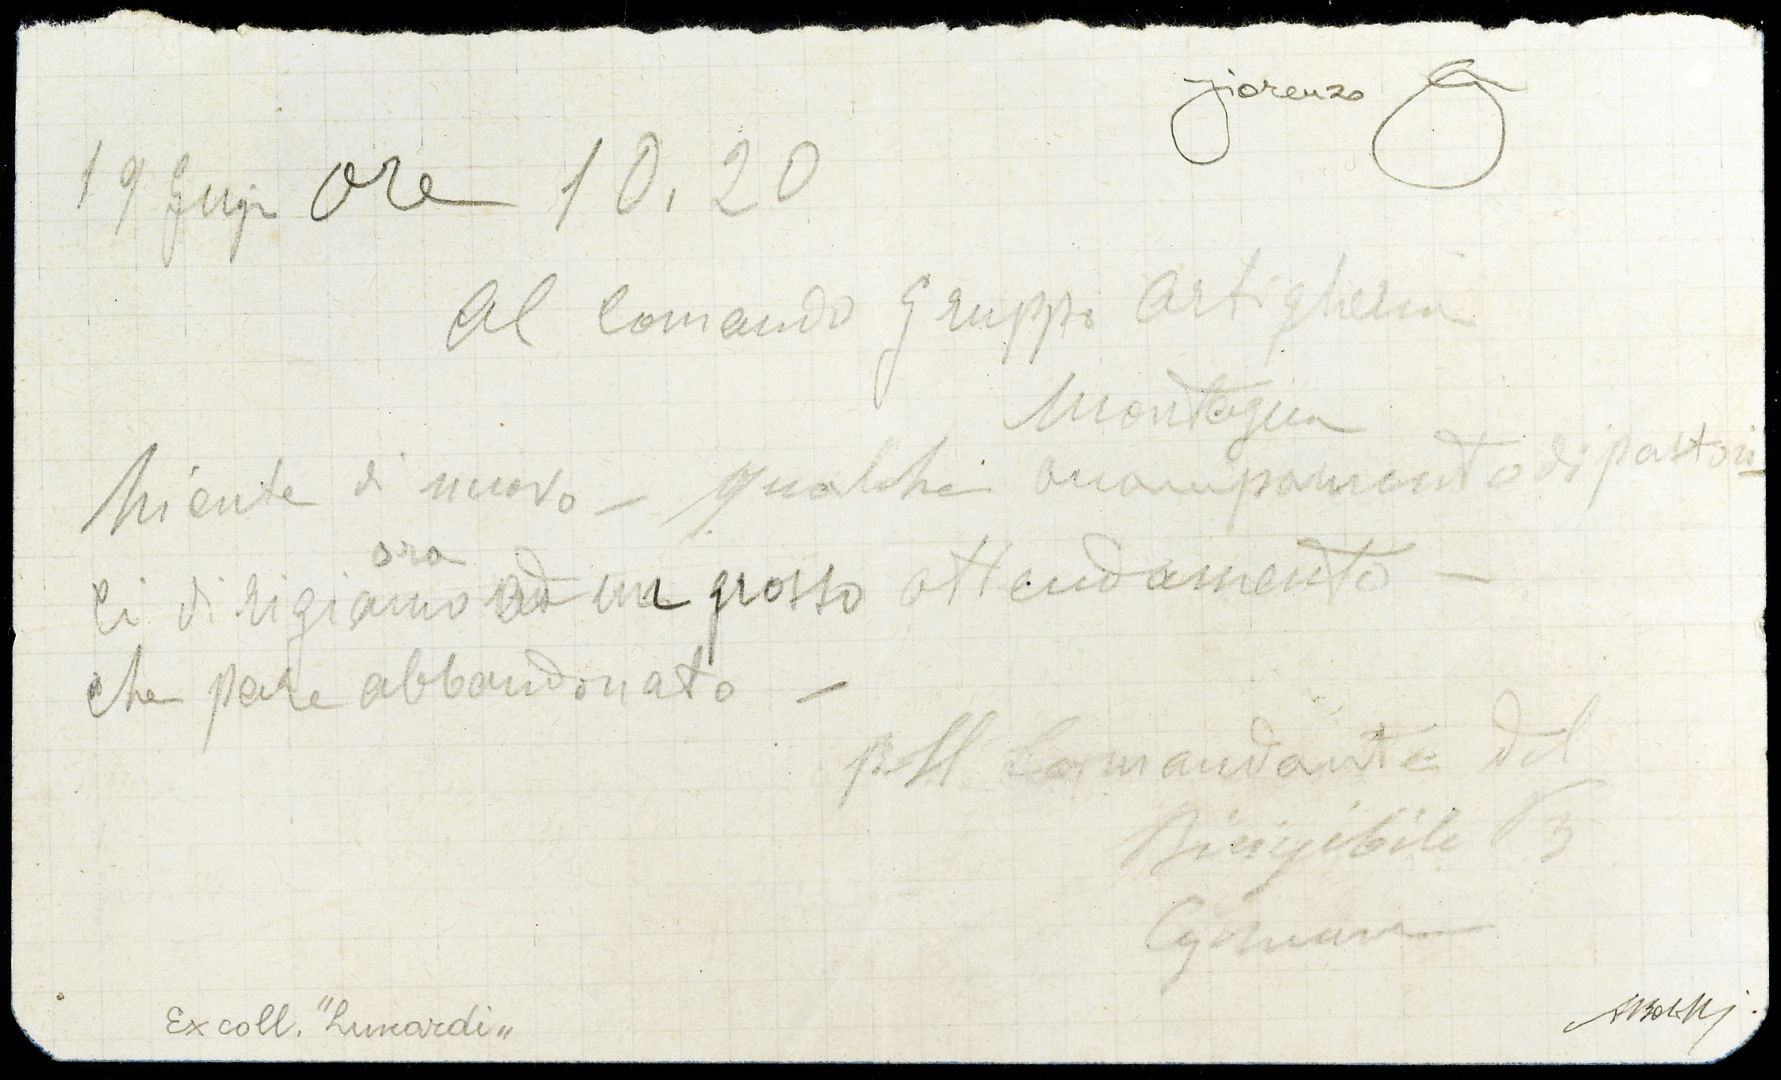 Fiorenzo
19 Giugn ore 10.20
Al Comando Gruppo Artiglieria
Montagna
Niente di nuovo - Qualche accampamento di pastori
ora
ci dirigiamo ad un grosso attendamento -
che pare abbandonato -
p Il Comandante del
Dirigibile P3
Ex coll. "Lunardi"